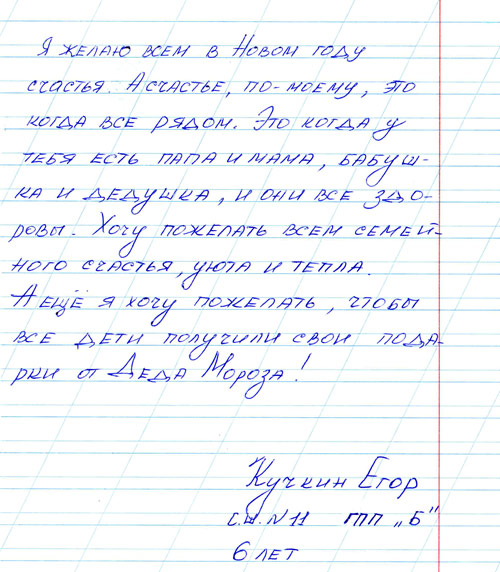 Я желаю всем в Новом году
счастья. А счастье, по-моему, это
когда все рядом. Это когда у
тебя есть папа и мама, бабуш-
ка и дедушка, и они все здо-
ровы. Хочу пожелать всем семей-
ного счастья, уюта и тепла.
А ещё я хочу пожелать, чтобы
все дети получили свои пода-
рки от Деда Мороза!
Кучкин Егор
С.Ш. N 11 ГПП „Б"
6 лет